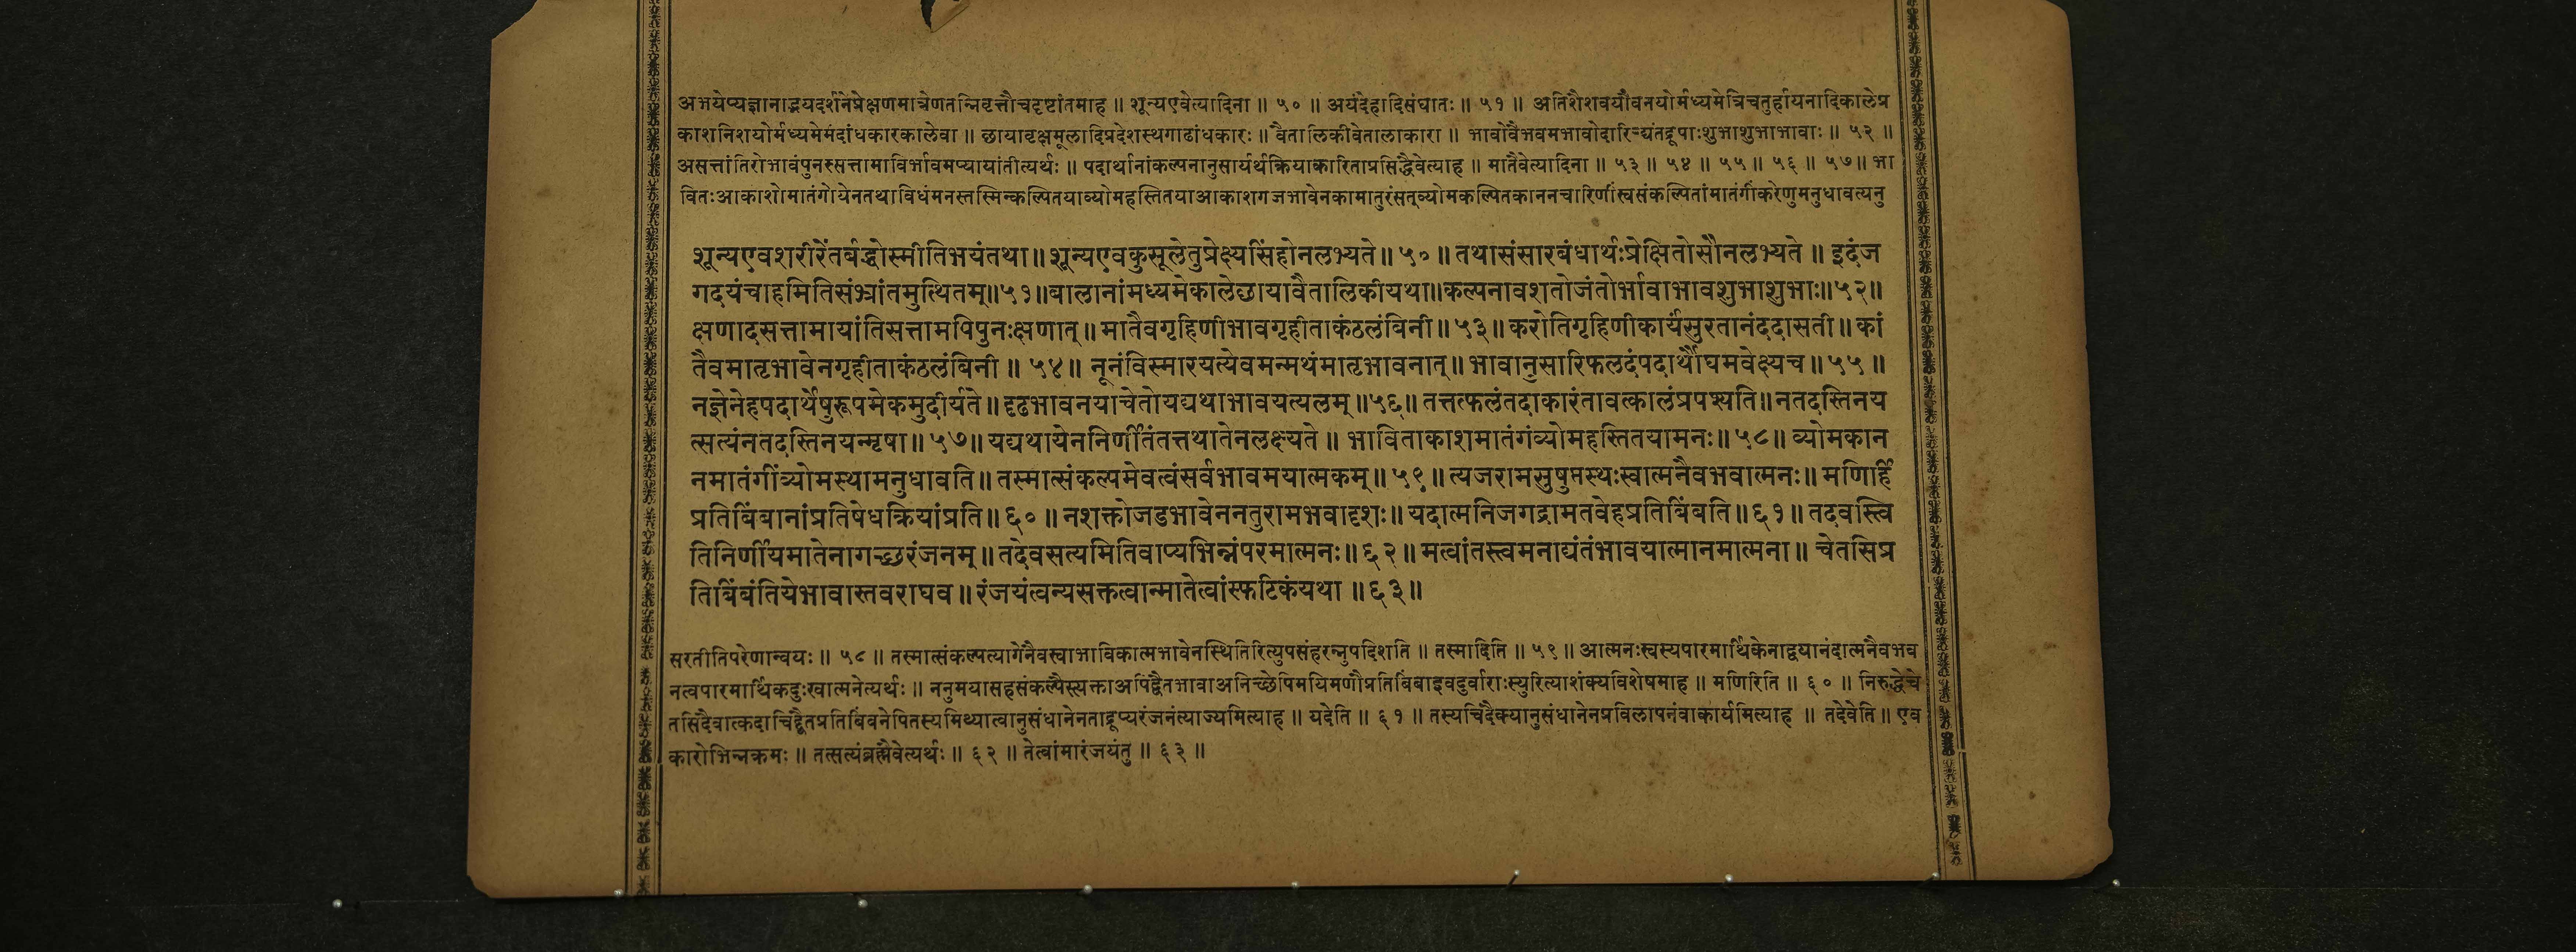 अभयेप्यज्ञानाद्भयदर्शनेप्रेक्षणमात्रेणतन्निवृत्तौचदृष्टांतमाह ॥ शून्यएवेत्यादिना ॥ ५० ॥ अयंदेहादिसंघातः ॥ ५१ ॥ अतिशैशवयौवनयोर्मध्यमेत्रिचतुर्हायनादिकालेप्र
काशनिशयोर्मध्यमेमंदांधकारकालेवा ॥ छायावृक्षमूलादिप्रदेशस्थगाढांधकारः ॥ वैतालिकीवेतालाकारा ॥ भावोवैभवमभावोदारिद्र्यंतद्रूपाःशुभाशुभाभावाः ॥ ५२ ॥
असत्तांतिरोभावंपुनस्सत्तामाविर्भावमप्यायांतीत्यर्थः ॥ पदार्थानांकल्पनानुसार्यर्थक्रियाकारिताप्रसिद्धैवेत्याह ॥ मातैवेत्यादिना ॥ ५३ ॥ ५४ ॥ ५५ ॥ ५६ ॥ ५७॥ भा
वितःआकाशोमातंगोयेनतथाविधंमनस्तस्मिन्कल्पितयाव्योमहस्तितयाआकाशगजभावेनकामातुरंसत्व्योमकल्पितकाननचारिणींस्वसंकल्पितांमातंगींकरेणुमनुधावत्यनु
शून्यएवशरीरेंतर्बद्धोस्मीतिभयंतथा॥शून्यएवकुसूलेतुप्रेक्ष्यसिंहोनलभ्यते॥५०॥तथासंसारबंधार्थःप्रेक्षितोसौनलभ्यते ॥ इदंज
गदयंचाहमितिसंभ्रांतमुत्थितम्॥५१॥बालानांमध्यमेकालेछायावैतालिकीयथा॥कल्पनावशतोजंतोर्भावाभावशुभाशुभाः॥५२॥
क्षणादसत्तामायांतिसत्तामपिपुनःक्षणात्॥मातैवगृहिणीभावगृहीताकंठलंबिनी॥५३॥करोतिगृहिणीकार्यंसुरतानंददासती॥कां
तैवमातृभावेनगृहीताकंठलंबिनी ॥ ५४॥ नूनंविस्मारयत्येवमन्मथंमातृभावनात्॥भावानुसारिफलदंपदार्थौघमवेक्ष्यच॥५५॥
नज्ञेनेहपदार्थेषुरूपमेकमुदीर्यते॥दृढभावनयाचेतोयद्यथाभावयत्यलम्॥५६॥ तत्तत्फलंतदाकारंतावत्कालंप्रपश्यति॥नतदस्तिनय
त्सत्यंनतदस्तिनयन्मृषा॥५७॥यद्यथायेननिर्णीतंतत्तथातेनलक्ष्यते॥ भाविताकाशमातंगंव्योमहस्तितयामनः॥५८॥ व्योमकान
नमातंगींव्योमस्थामनुधावति॥तस्मात्संकल्पमेवत्वंसर्वभावमयात्मकम्॥५९॥त्यजरामसुषुप्तस्थःस्वात्मनैवभवात्मनः॥ मणिर्हि
प्रतिबिंबानांप्रतिषेधक्रियांप्रति॥६०॥नशक्तोजडभावेननतुरामभवादृशः॥यदात्मनिजगद्रामतवेहप्रतिबिंबति॥६१॥तदवस्त्वि
तिनिर्णीयमातेनागच्छरंजनम्॥तदेवसत्यमितिवाप्यभिन्नंपरमात्मनः॥६२॥मत्वांतस्त्वमनाद्यंतंभावयात्मानमात्मना॥ चेतसिप्र
तिबिंबंतियेभावास्तवराघव॥रंजयंत्वन्यसक्तत्वान्मातेत्वांस्फटिकंयथा ॥६३॥
सरतीतिपरेणान्वयः ॥ ५८ ॥ तस्मात्संकल्पत्यागेनैवस्वाभाविकात्मभावेनस्थितिरित्युपसंहरन्नुपदिशति ॥ तस्मादिति ॥ ५९ ॥ आत्मनःस्वस्यपारमार्थिकेनाद्वयानंदात्मनैवभव
नत्वपारमार्थिकदुःखात्मनेत्यर्थः ॥ ननुमयासहसंकल्पैस्त्यक्ताअपिद्वैतभावाअनिच्छेपिमयिमणौप्रतिबिंबाइवदुर्वाराःस्युरित्याशंक्यविशेषमाह ॥ मणिरिति ॥ ६० ॥ निरुद्धेचे
तसिदैवात्कदाचिद्द्वैतप्रतिबिंबनेपितस्यमिथ्यात्वानुसंधानेनताद्रूप्यरंजनंत्याज्यमित्याह ॥ यदेति ॥ ६१ ॥ तस्यचिदैक्यानुसंधानेनप्रविलापनंवाकार्यमित्याह ॥ तदेवेति ॥ एव
कारोभिन्नक्रमः ॥ तत्सत्यंब्रह्मैवेत्यर्थः ॥ ६२ ॥ तेत्वांमारंजयंतु ॥ ६३ ॥